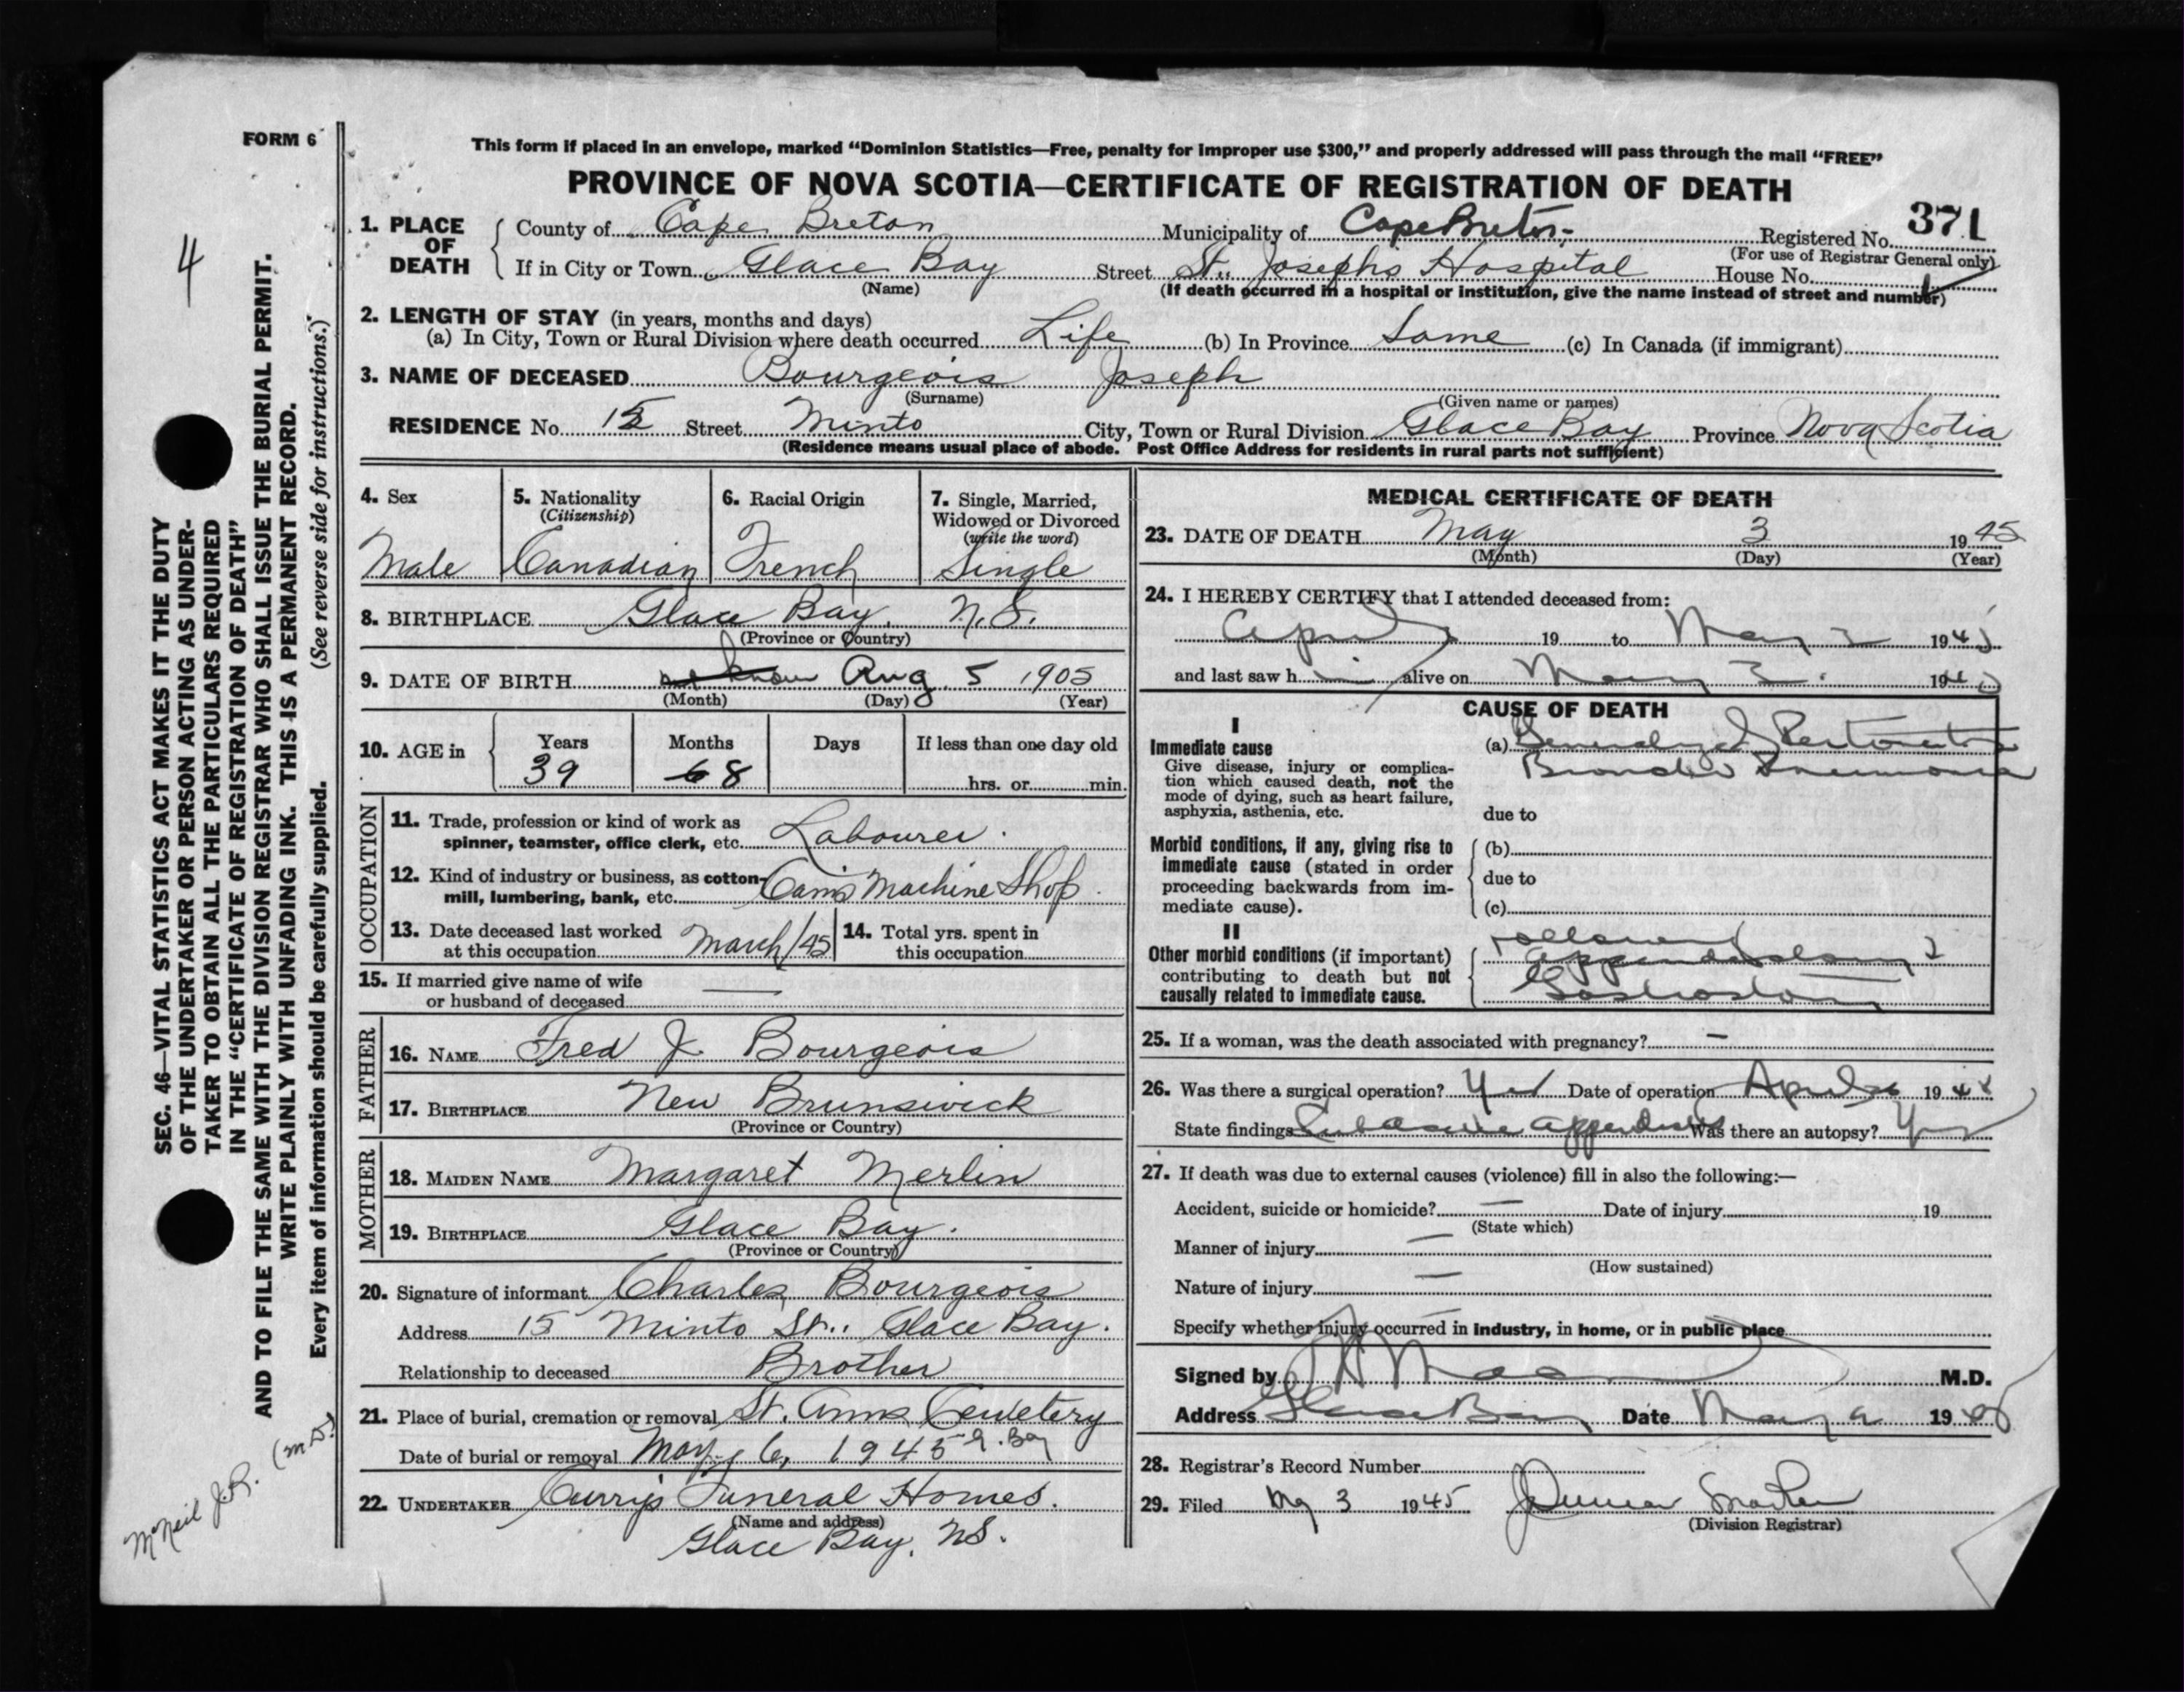 FORM 6
This form if placed in an envelope, marked "Dominion Statistics—Free, penalty for improper use $300," and properly addressed will pass through the mail "FREE"
PROVINCE OF NOVA SCOTIA—CERTIFICATE OF REGISTRATION OF DEATH
371
1. PLACE OF DEATH County of Cape Breton Municipality of Cape Breton Registered No.
(For use of Registrar General only)
If in City or Town Glace Bay Street St. Josephs Hospital House No.
(Name) (If death occurred in a hospital or institution, give the name instead of street and number)
2. LENGTH OF STAY (in years, months and days)
(a) In City, Town or Rural Division where death occurred Life (b) In Province Same (c) In Canada (if immigrant)
3. NAME OF DECEASED Bourgeois Joseph
(Surname) (Given name or names)
RESIDENCE No. 15 Street Minto City, Town or Rural Division Glace Bay Province Nova Scotia
(Residence means usual place of abode. Post Office Address for residents in rural parts not sufficient)
4. Sex
Male
5. Nationality
(Citizenship)
Canadian
6. Racial Origin
French
7. Single, Married,
Widowed or Divorced
(write the word)
Single
8. BIRTHPLACE Glace Bay. N.S.
(Province or Country)
9. DATE OF BIRTH Aug 5 1905
(Month) (Day) (Year)
10. AGE in Years Months Days If less than one day old
39 6 8 hrs. or min.
OCCUPATION
11. Trade, profession or kind of work as
spinner, teamster, office clerk, etc. Labourer.
12. Kind of industry or business, as cotton-
mill, lumbering, bank, etc. Machine Shop.
13. Date deceased last worked
at this occupation March/45
14. Total yrs. spent in
this occupation
15. If married give name of wife
or husband of deceased —
FATHER
16. NAME Fred J. Bourgeois
17. BIRTHPLACE New Brunswick
(Province or Country)
MOTHER
18. MAIDEN NAME Margaret Merlin
19. BIRTHPLACE Glace Bay.
(Province or Country)
20. Signature of informant Charles Bourgeois
Address 15 Minto St., Glace Bay.
Relationship to deceased Brother
21. Place of burial, cremation or removal St. Anns Cemetery
Date of burial or removal May 6, 1945 G. Bay
22. UNDERTAKER Curry's Funeral Homes.
(Name and address)
Glace Bay, NS.
MEDICAL CERTIFICATE OF DEATH
23. DATE OF DEATH May 3 1945
(Month) (Day) (Year)
24. I HEREBY CERTIFY that I attended deceased from:
April 19 to May 3 1945
and last saw h im alive on May 3. 19
CAUSE OF DEATH
I
Immediate cause
Give disease, injury or complica-
tion which caused death, not the
mode of dying, such as heart failure,
asphyxia, asthenia, etc.
(a) Generalized Peritonitis
Broncho Pneumonia
due to
Morbid conditions, if any, giving rise to
immediate cause (stated in order
proceeding backwards from im-
mediate cause).
(b)
due to
(c)
II
Other morbid conditions (if important)
contributing to death but not
causally related to immediate cause.
following
25. If a woman, was the death associated with pregnancy? —
26. Was there a surgical operation? Yes Date of operation April 19
State findings Subacute Appendicitis Was there an autopsy? Yes
27. If death was due to external causes (violence) fill in also the following:—
Accident, suicide or homicide? — Date of injury 19
(State which)
Manner of injury —
(How sustained)
Nature of injury —
Specify whether injury occurred in industry, in home, or in public place
Signed by M.D.
Address Glace Bay Date May 19
28. Registrar's Record Number
29. Filed My 3 1945
(Division Registrar)
4
SEC. 46—VITAL STATISTICS ACT MAKES IT THE DUTY
OF THE UNDERTAKER OR PERSON ACTING AS UNDER-
TAKER TO OBTAIN ALL THE PARTICULARS REQUIRED
IN THE "CERTIFICATE OF REGISTRATION OF DEATH"
AND TO FILE THE SAME WITH THE DIVISION REGISTRAR WHO SHALL ISSUE THE BURIAL PERMIT.
WRITE PLAINLY WITH UNFADING INK. THIS IS A PERMANENT RECORD.
Every item of information should be carefully supplied. (See reverse side for instructions.)
McNeil J.R. (M.D.)